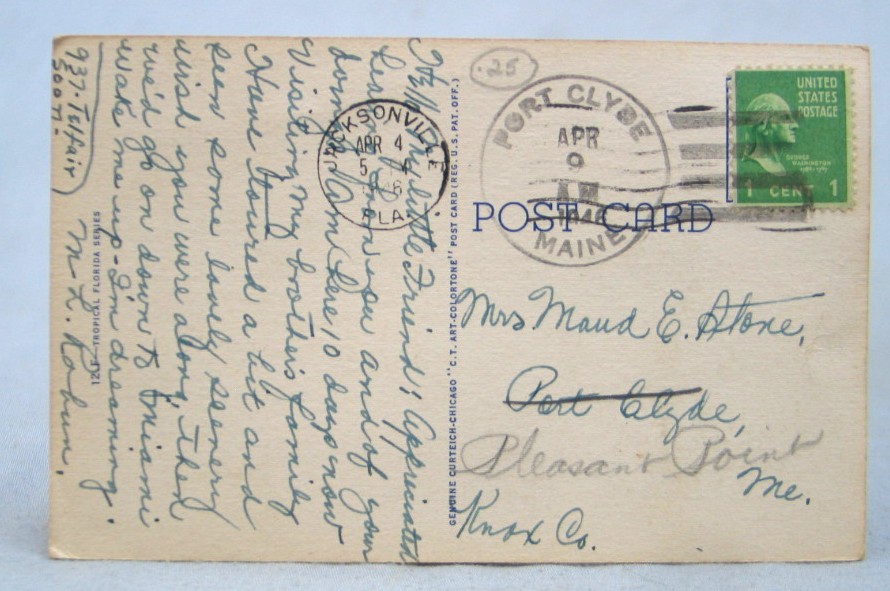 Well my little Friend; Appreciated
hearing from you and of your
doings. Am here 10 days now
visiting my brother's family
Have toured a bit and
seen some lovely scenery
wish you were along, then
we'd go on down to Miami
wake me up - I'm dreaming.
M L. Rabun.
937- Telfair
JACKSONVILLE
APR 4
FLA.
12LF- TROPICAL FLORIDA SERIES
GENUINE CURTEICH-CHICAGO "C.T. ART-COLORTONE" POST CARD (REG. U.S. PAT. OFF.)
.25
PORT CLYDE
APR
9
A M
1946
MAINE
UNITED
STATES
POSTAGE
GEORGE
WASHINGTON
1 CENT 1
POST CARD
Mrs Maud E. Stone,
Port Clyde,
Pleasant Point
Me.
Knox Co.